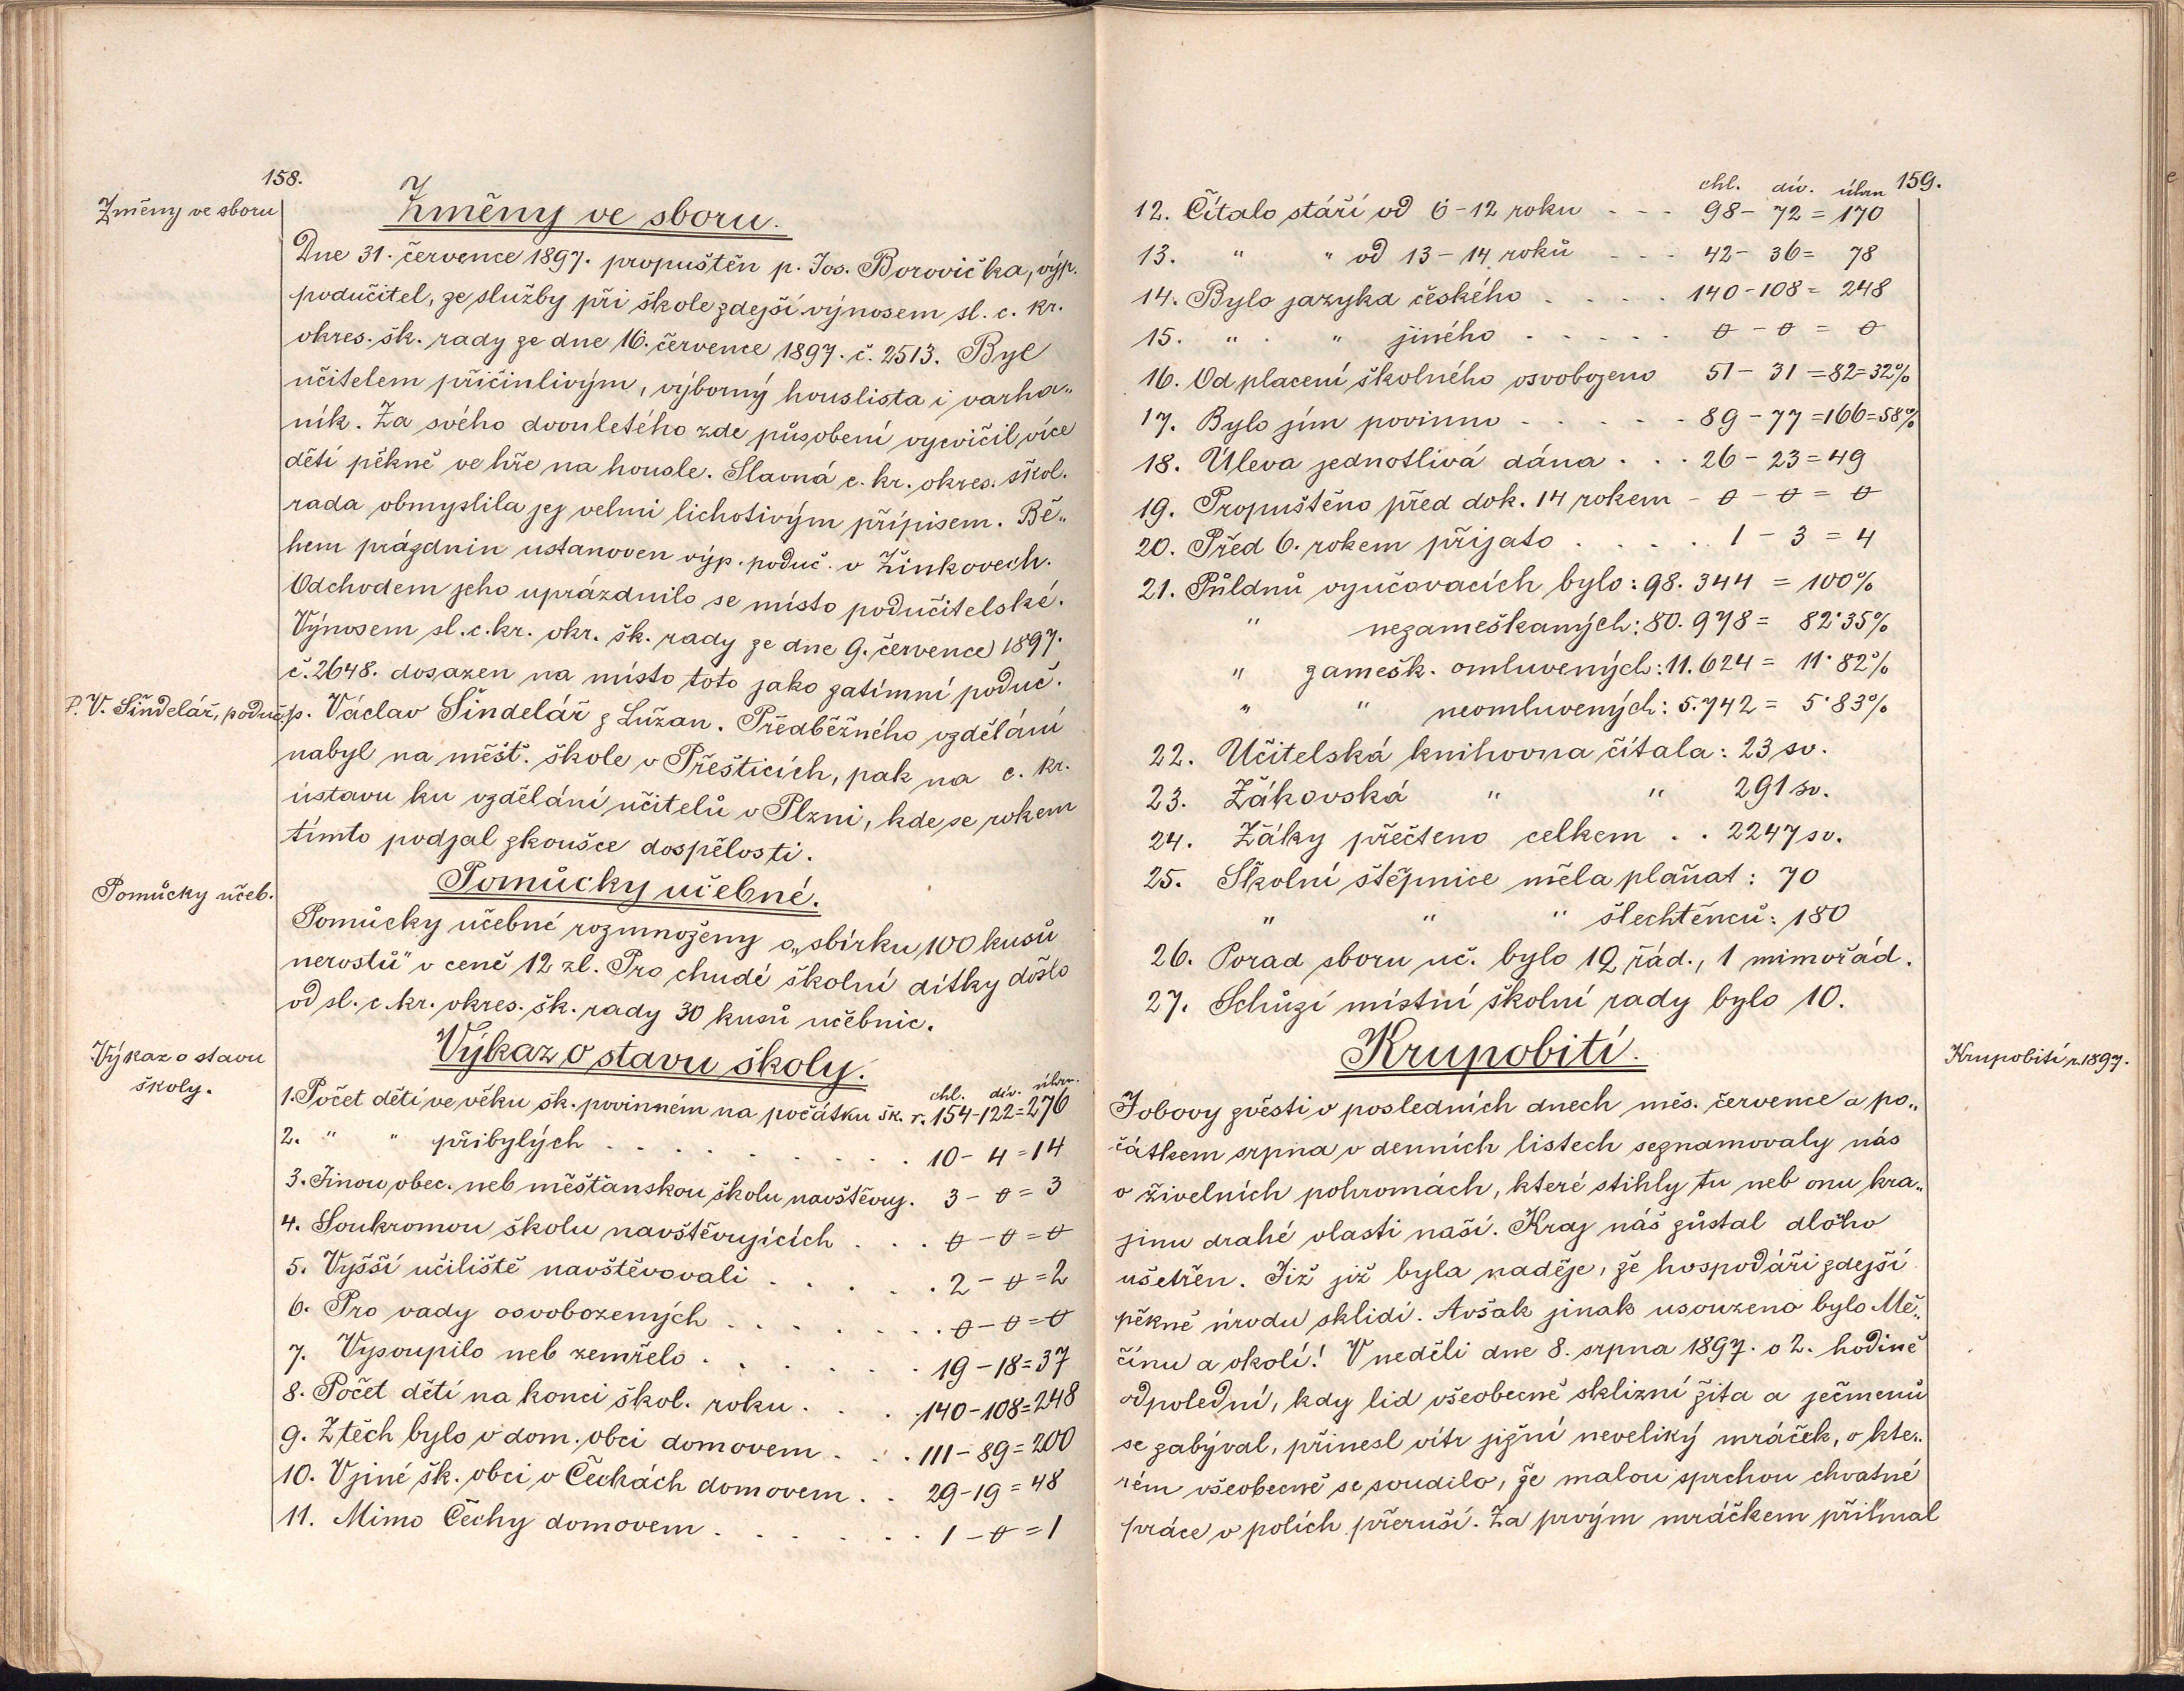 158.
Změny ve sboru
Změny ve sboru.
Dne 31. července 1897. propuštěn p. Jos. Borovička, výp.
podučitel, ze služby při škole zdejší výnosem sl. c. kr.
okres. šk. rady ze dne 16. července 1897. č. 2513. Byl
učitelem přičinlivým, výborný houslista i varha„
ník. Za svého dvouletého zde působení vycvičil více
dětí pěkně ve hře na housle. Slavná c. kr. okres. škol.
rada obmyslila jej velmi lichotivým přípisem. Bě„
hem prázdnin ustanoven výp. poduč. v Žinkovech.
Odchodem jeho uprázdnilo se místo podučitelské.
Výnosem sl. c. kr. okr. šk. rady ze dne 9. července 1897.
č. 2648. dosazen na místo toto jako zatímní poduč.
P. V. Šindelář, poduč.
p. Václav Šindelář z Lužan. Předběžného vzdělání
nabyl na měšť. škole v Přešticích, pak na c. kr.
ústavu ku vzdělání učitelů v Plzni, kde se rokem
tímto podjal zkoušce dospělosti.
Pomůcky učeb.
Pomůcky učebné.
Pomůcky učebné rozmnoženy o „sbírku 100 kusů
nerostů" v ceně 12 zl. Pro chudé školní dítky došlo
od sl. c. kr. okres. šk. rady 30 kusů učebnic.
Výkaz o stavu
školy.
Výkaz o stavu školy.
chl. dív. úhrn.
1. Počet dětí ve věku šk. povinném na počátku šk. r. 154-122=276
2. " " přibylých . . . . . . . . . 10 - 4 = 14
3. Jinou obec. neb měšťanskou školu navštěvuj. 3 - 0 = 3
4. Soukromou školu navštěvujících . . . 0 - 0 = 0
5. Vyšší učiliště navštěvovali . . . . . 2 - 0 = 2
6. Pro vady osvobozených . . . . . . . 0 - 0 = 0
7. Vysoupilo neb zemřelo . . . . . . 19 - 18 = 37
8. Počet dětí na konci škol. roku . . . 140 - 108 = 248
9. Z těch bylo v dom. obci domovem . . . 111 - 89 = 200
10. V jiné šk. obci v Čechách domovem . . 29 - 19 = 48
11. Mimo Čechy domovem . . . . . . . 1 - 0 = 1
159.
chl. dív. úhrn
12. Čítalo stáří od 6-12 roku - - - 98 - 72 = 170
13. " " od 13-14 roků - - - 42 - 36 = 78
14. Bylo jazyka českého . . . . 140 - 108 = 248
15. " " jiného . . . . . 0 - 0 = 0
16. Od placení školného osvobozeno 51 - 31 = 82 = 32%
17. Bylo jím povinno . . . . . 89 - 77 = 166 = 58%
18. Úleva jednotlivá dána . . . 26 - 23 = 49
19. Propuštěno před dok. 14 rokem - 0 - 0 = 0
20. Před 6. rokem přijato . . . . 1 - 3 = 4
21. Půldnů vyučovacích bylo: 98.344 = 100%
" nezameškaných: 80.978 = 82·35%
" zamešk. omluvených: 11.624 = 11·82%
" " neomluvených: 5.742 = 5·83%
22. Učitelská knihovna čítala: 23 sv.
23. Žákovská " " 291 sv.
24. Žáky přečteno celkem . . 2247 sv.
25. Školní štěpnice měla plaňat: 70
" " " šlechtěnců: 180
26. Porad sboru uč. bylo 12 řád., 1 mimořád.
27. Schůzí místní školní rady bylo 10.
Krupobití r. 1897.
Krupobití.
Jobovy zvěsti v posledních dnech měs. července a po„
čátkem srpna v denních listech seznamovaly nás
o živelních pohromách, které stihly tu neb onu kra„
jinu drahé vlasti naší. Kraj náš zůstal dlouho
ušetřen. Již již byla naděje, že hospodáři zdejší
pěkně úrodu sklidí. Avšak jinak usouzeno bylo Mě„
čínu a okolí! V neděli dne 8. srpna 1897. o 2. hodině
odpolední, kdy lid všeobecně sklizní žita a ječmenů
se zabýval, přinesl vítr jižní neveliký mráček, o kte„
rém všeobecně se soudilo, že malou sprchou chvatné
práce v polích přeruší. Za prvým mráčkem přihnal